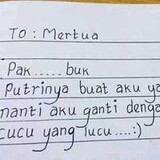 TO : Mertua
Pak.....buk
Putrinya buat aku ya
nanti aku ganti denga
cucu yang lucu....:)